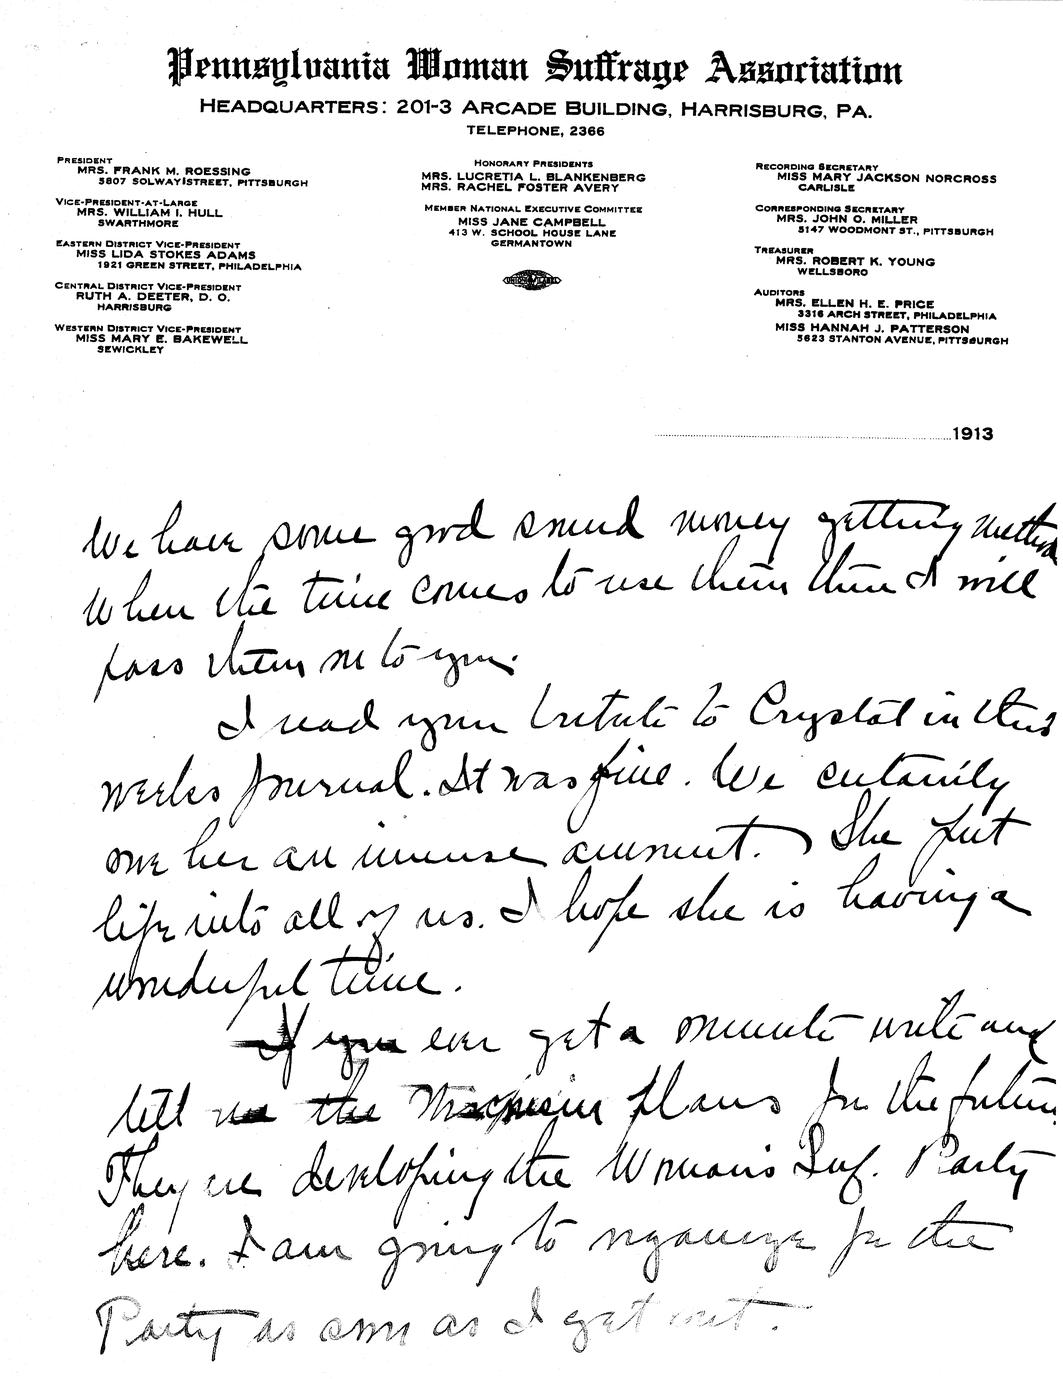 Pennsylvania Woman Suffrage Association
HEADQUARTERS: 201-3 ARCADE BUILDING, HARRISBURG, PA.
TELEPHONE, 2366
PRESIDENT
MRS. FRANK M. ROESSING
5807 SOLWAY STREET, PITTSBURGH
VICE-PRESIDENT-AT-LARGE
MRS. WILLIAM I. HULL
SWARTHMORE
EASTERN DISTRICT VICE-PRESIDENT
MISS LIDA STOKES ADAMS
1921 GREEN STREET, PHILADELPHIA
CENTRAL DISTRICT VICE-PRESIDENT
RUTH A. DEETER, D. O.
HARRISBURG
WESTERN DISTRICT VICE-PRESIDENT
MISS MARY E. BAKEWELL
SEWICKLEY
HONORARY PRESIDENTS
MRS. LUCRETIA L. BLANKENBERG
MRS. RACHEL FOSTER AVERY
MEMBER NATIONAL EXECUTIVE COMMITTEE
MISS JANE CAMPBELL
413 W. SCHOOL HOUSE LANE
GERMANTOWN
UNION LABEL
RECORDING SECRETARY
MISS MARY JACKSON NORCROSS
CARLISLE
CORRESPONDING SECRETARY
MRS. JOHN O. MILLER
5147 WOODMONT ST., PITTSBURGH
TREASURER
MRS. ROBERT K. YOUNG
WELLSBORO
AUDITORS
MRS. ELLEN H. E. PRICE
3316 ARCH STREET, PHILADELPHIA
MISS HANNAH J. PATTERSON
5623 STANTON AVENUE, PITTSBURGH
1913
We have some good sound money getting
When the time comes to use them then I will
pass them on to you.
I read your tribute to Crystal in this
weeks Journal. It was fine. We certainly
owe her an immense amount. She put
life into all of us. I hope she is having a
wonderful time.
If you ever get a minute write and
tell me the plans for the future
They are developing the Woman's Suf. Party
here. I am going to organize for the
Party as soon as I get out.